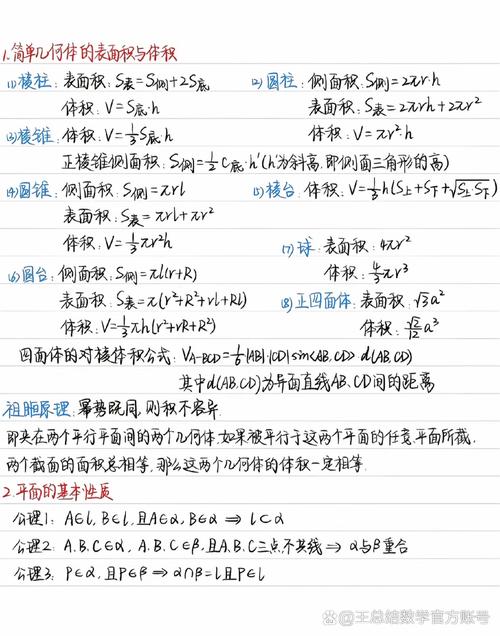 1.简单几何体的表面积与体积
(1)棱柱:表面积:S表=S侧+2S底
体积:V=S底·h
(2)圆柱:侧面积:S侧=2πr·h
表面积:S表=2πrh+2πr²
体积:V=πr²·h
(3)棱锥:体积:V=1/3S底·h
正棱锥侧面积:S侧=1/2C底·h'(h'为斜高,即侧面三角形的高)
(4)圆锥:侧面积:S侧=πrl
表面积:S表=πrl+πr²
体积:V=1/3πr²h
(5)棱台:体积:V=1/3h(S上+S下+√S上·S下)
(6)圆台:侧面积:S侧=πl(r+R)
表面积:S表=π(r²+R²+rl+Rl)
体积:V=1/3πh(r²+rR+R²)
(7)球:表面积:4πr²
体积:4/3πr³
(8)正四面体:表面积:√3a²
体积:√2/12a³
四面体的对棱体积公式:VA-BCD=1/6|AB|·|CD|sin<AB,CD>·d(AB,CD)
其中d(AB,CD)为异面直线AB、CD间的距离
祖暅原理:幂势既同,则积不容异.
即夹在两个平行平面间的两个几何体,如果被平行于这两个平面的任意平面所截,
两个截面的面积总相等,那么这两个几何体的体积一定相等.
2.平面的基本性质
公理1:A∈l,B∈l,且A∈α,B∈α⇒l⊂α
公理2:A.B.C∈α,A.B.C∈β,且A.B.C三点不共线⇒α与β重合
公理3:P∈α,且P∈β⇒α∩β=l且P∈l
@王总结数学官方账号